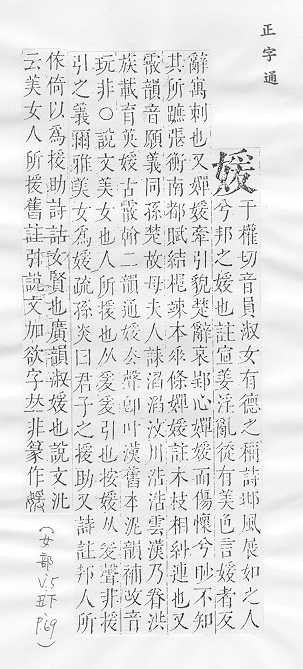 正字通
媛
于權切音員淑女有德之稱詩鄘風展如之人
兮邦之媛也註宣姜淫亂徒有美色言媛者反
辭寓刺也又嬋媛牽引貌楚辭哀郢心嬋媛而傷懷兮眇不知
其所蹠張衡南都賦結根竦本垂條嬋媛註木枝相糾連也又
霰韻音願義同孫楚故母夫人誄滔滔汶川浩浩雲漢乃眷洪
族載育英媛古霰翰二韻通媛去聲卽叶漢舊本泥韻補改音
玩非○說文美女也人所援也从爰爰引也按媛从爰聲非援
引之義爾雅美女爲媛疏孫炎曰君子之援助又詩註邦人所
依倚以爲援助詩詁女賢也廣韻淑媛也說文汎
云美女人所援舊註引說文加欲字𠀤非篆作
(女部 V.5 丑下 P.69)